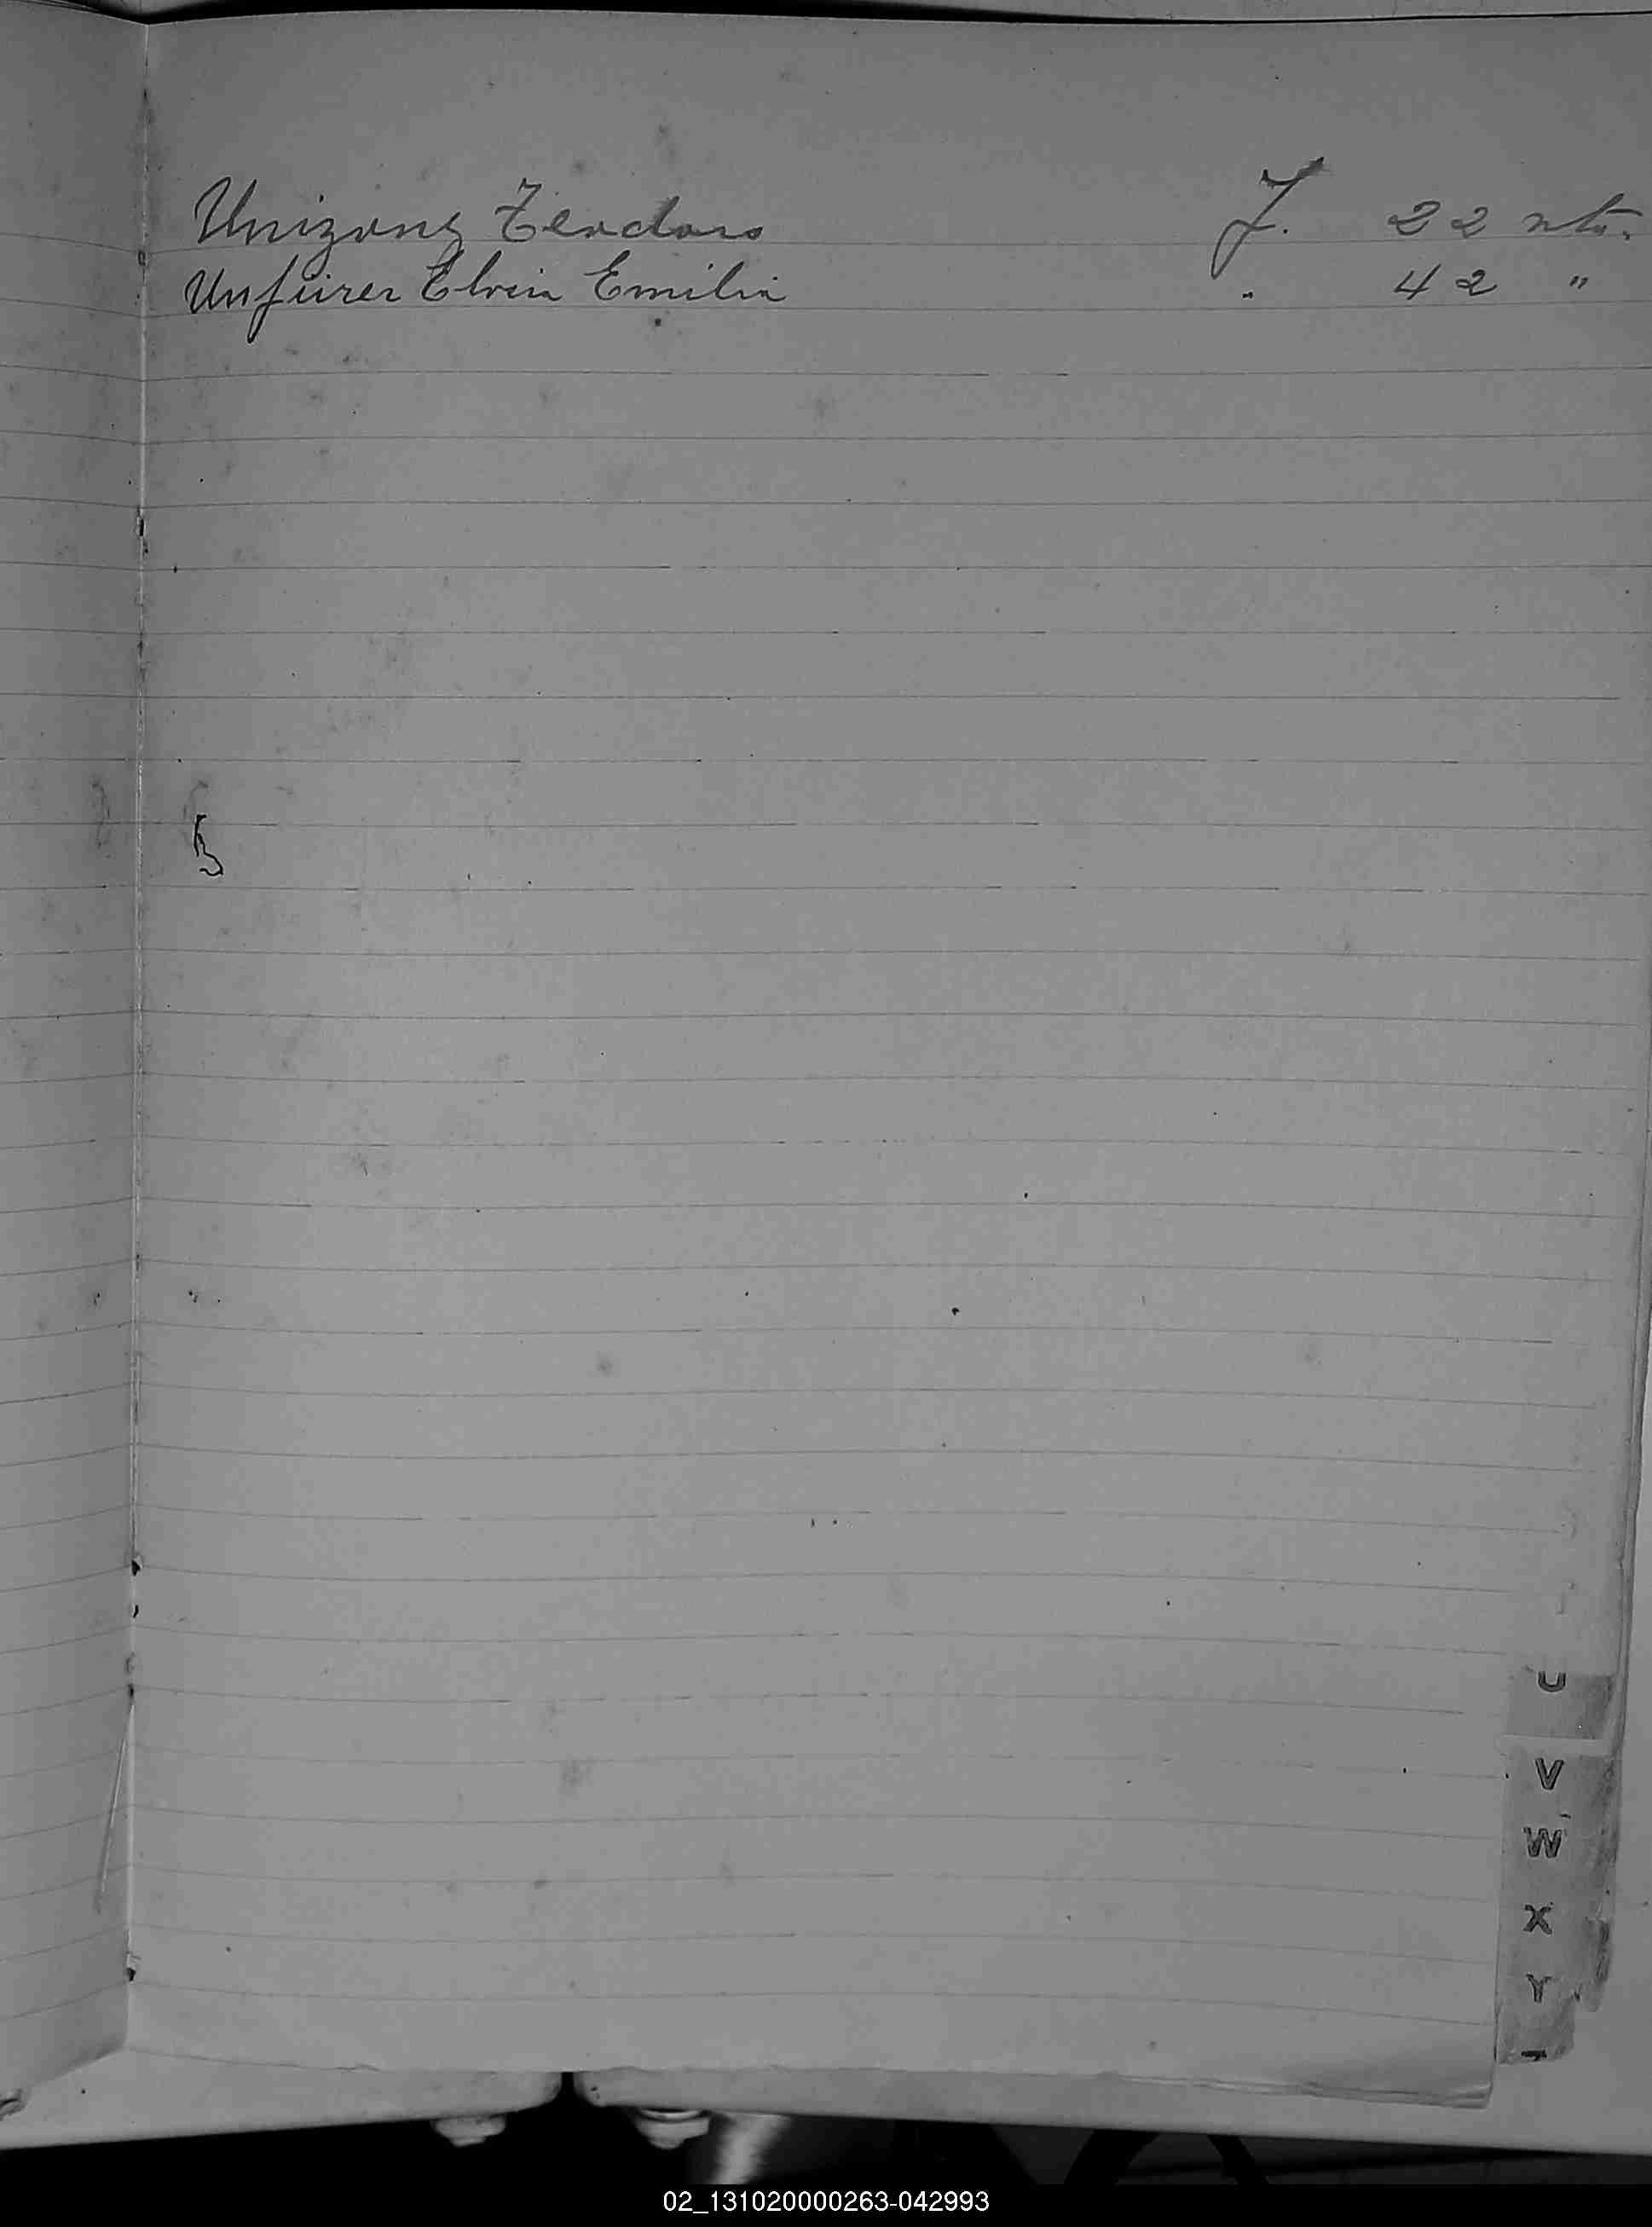 Unizony Teodoro F. 22 nts.
Unfürer Elvin Emilia " 42 "
U
V
W
X
Y
02_131020000263-042993